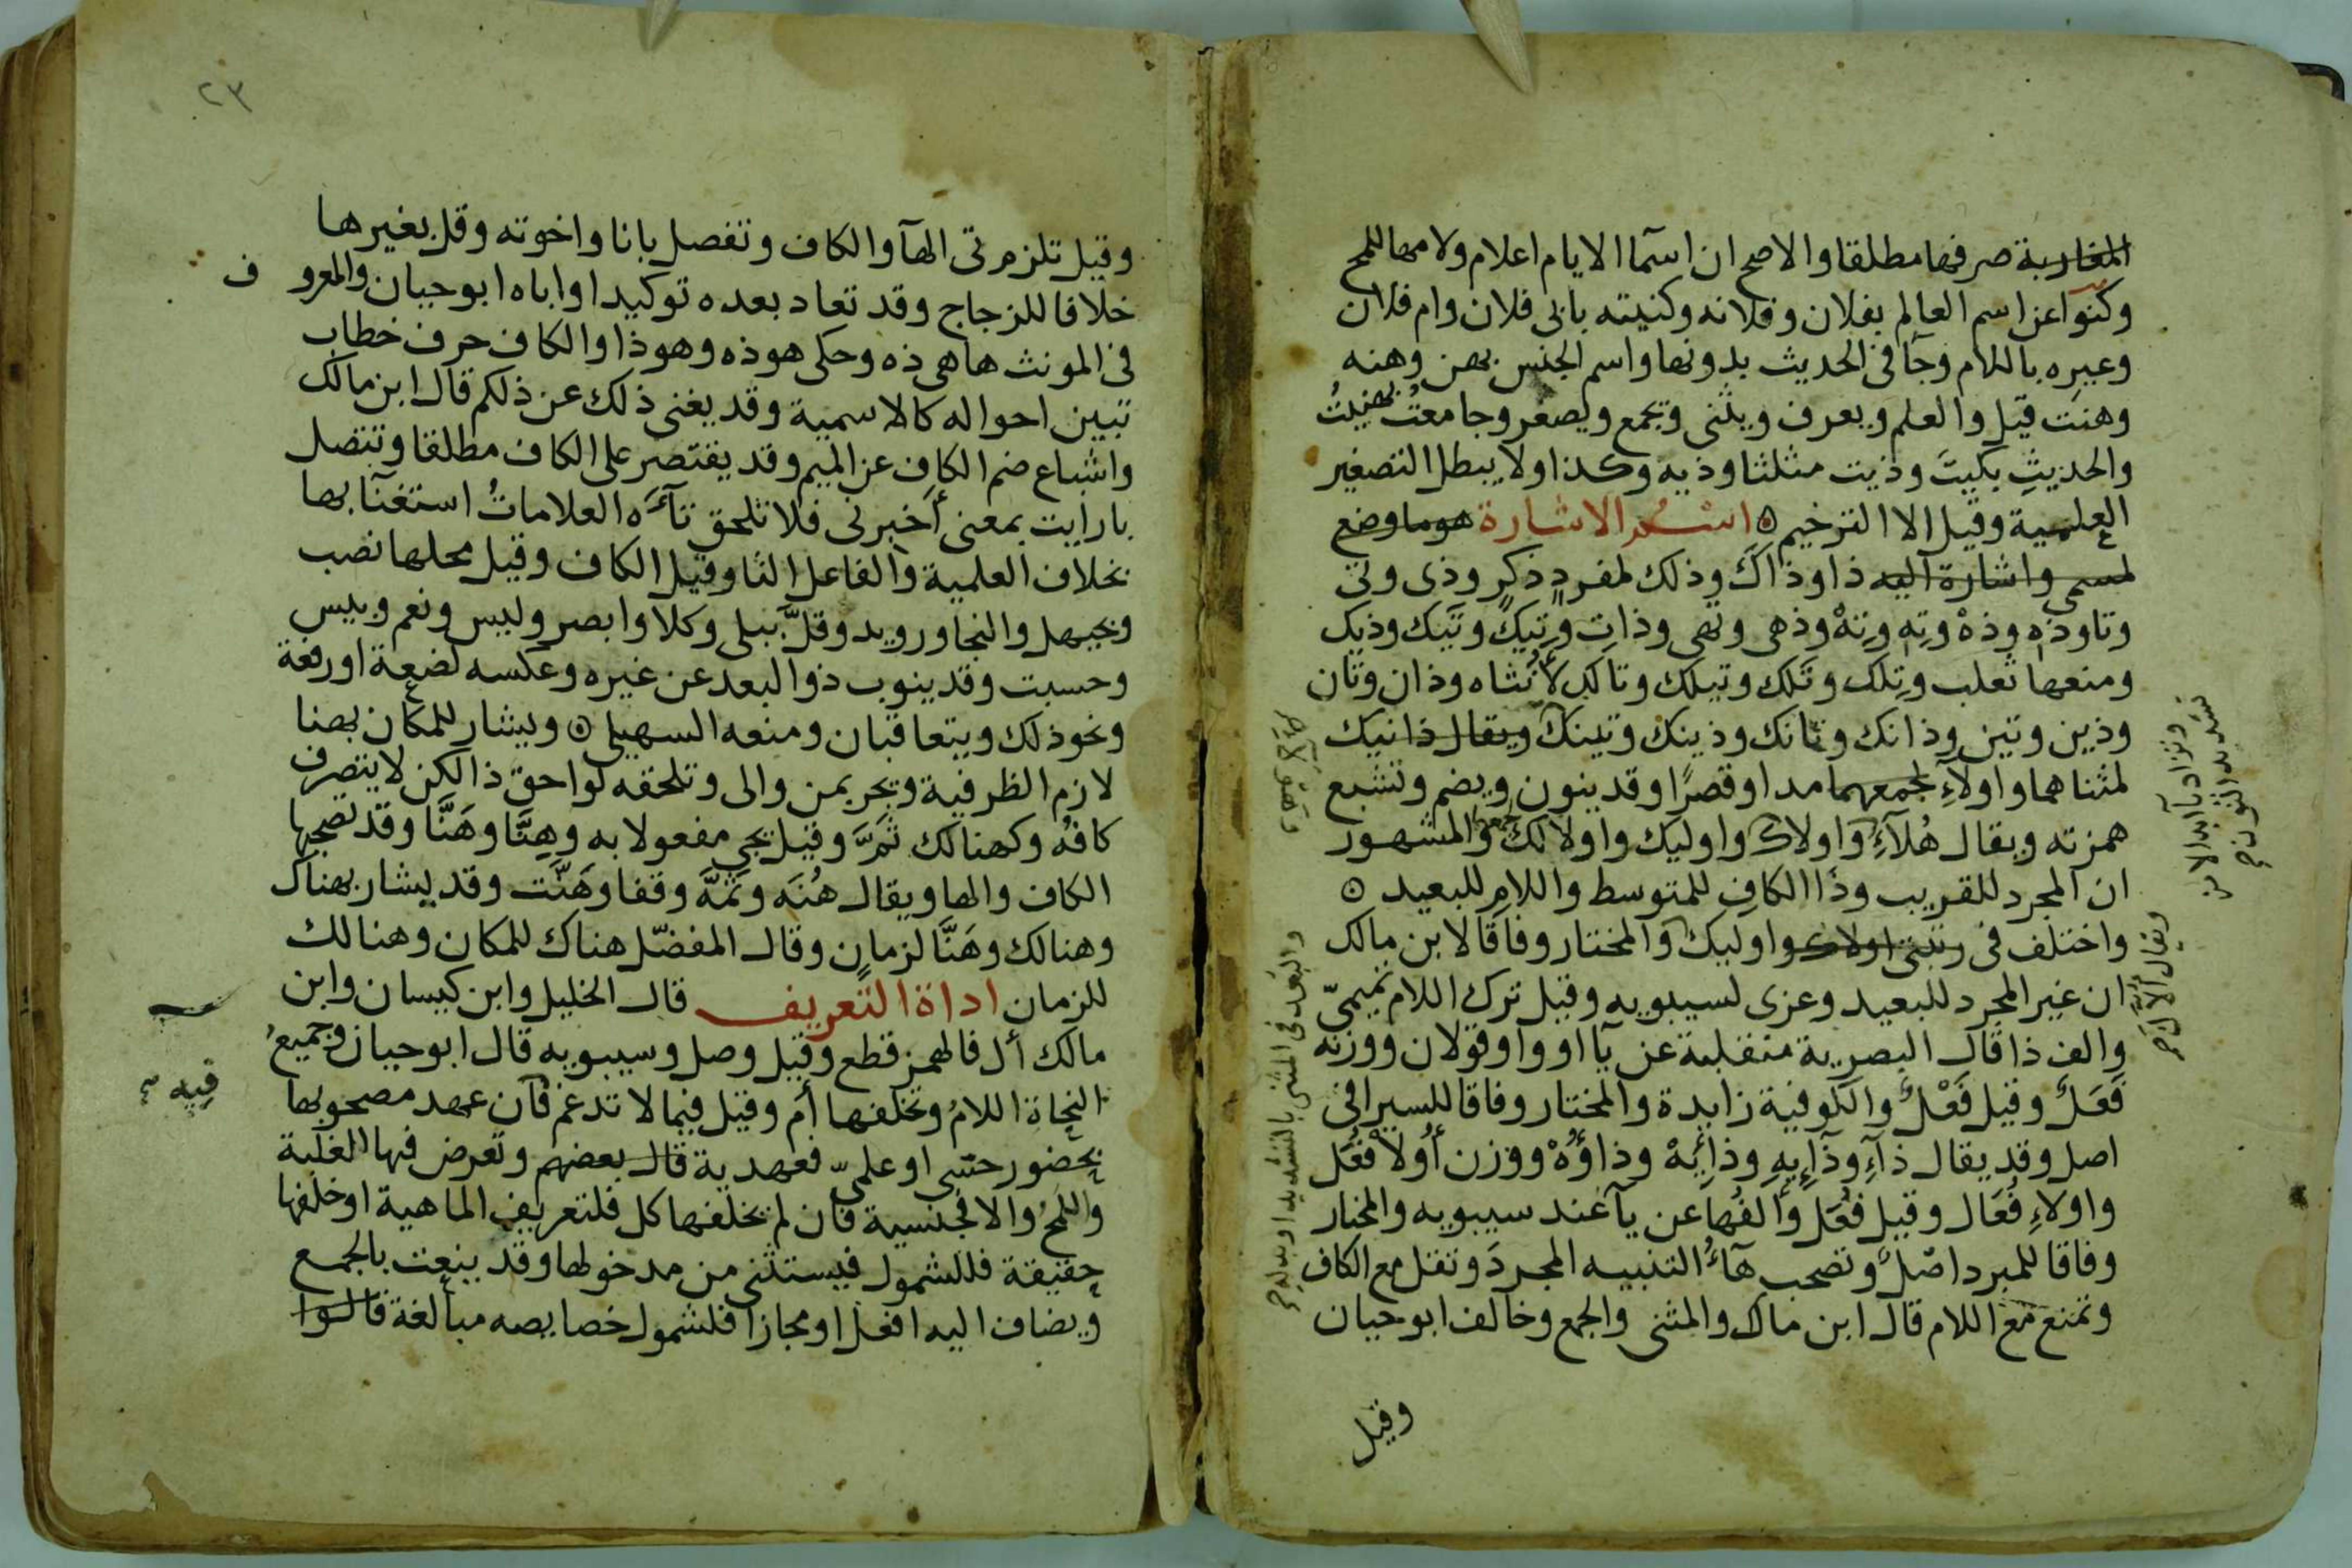 المغاربة صرفها مطلقا والاصح ان اسما الايام اعلام ولامها للمح
وكنوا عن اسم العالم بفلان وفلانه وكنيته بابى فلان وام فلان
وغيره باللام وجآ فى الحديث بدونها واسم الجنس بهن وهنه
وهنت قيل والعلم ويعرف ويثنى ويجمع ويصغر وجامعت بهنيت
والحديث بكيت وذيت مثلثا وذيه وكذا ولا يبطل التصغير
العلمية وقيل الا الترخيم ٥ اسم الاشارة هو ما وضع
لمسمى واشارة اليه ذا وذاك وذلك لمفرد ذكر وذى وتى
وتا وذه وذهْ وته وتهْ وذهى وتهى وذات وتيك وتَيك وذيك
ومنعها ثعلب وتلك وتَلك وتيلك وتالك لأنثاه وذان وتان
وذين وتين وذانك وتانك وذينك وتينك ويقال ذانيك
لمثناهما واولاء لجمعهما مدا وقصرًا وقد ينون ويضم وتشبع
همزته ويقال هُلآءِ واولاك واوليك واولالك والمشهور
ان المجرد للقريب وذا الكاف للمتوسط واللام للبعيد ٥
واختلف فى رتبتى اولاك واوليك والمختار وفاقا لابن مالك
ان غير المجرد للبعيد وعزى لسيبويه وقيل ترك اللام تميمىّ
والف ذا قال البصرية منقلبة عن يآ او واو قولان ووزنه
فَعَل وقيل فَعْل والكوفية زايدة والمختار وفاقا للسيرافى
اصل وقد يقال ذآءِ وذآءِيهِ وذائِهْ وذاؤُهْ ووزن أُولا فُعَل
واولاءِ فُعَال وقيل فُعَل وألفُها عن يآ عند سيبويه والمختار
وفاقا للمبرد اصل وتصحب هآءُ التنبيه المجردَ وتقل مع الكاف
وتمنع مع اللام قال ابن مالك والمثنى والجمع وخالف ابو حيان
وقيل
وتزاد يآ ابدالا من
تشديد النون صح
ويقال ألآّك صح
والبعد فى المثنى بالتشديد او بدله صح
٢٣
وقيل تلزم تى الهآ والكاف وتفصل بانا واخوته وقل بغيرها
خلافا للزجاج وقد تعاد بعده توكيدا واباه ابو حيان والمعروف
فى المونث ها هى ذه وحكى هوذه وهوذا والكاف حرف خطاب
تبين احواله كالاسمية وقد يغنى ذلك عن ذلكم قال ابن مالك
واشباع ضم الكاف عن الميم وقد يقتصر على الكاف مطلقا وتتصل
بارايت بمعنى أخبرنى فلا تلحق تآءَه العلاماتُ استغنآ بها
بخلاف العلمية والفاعل التا وقيل الكاف وقيل محلها نصب
وبحيهل والنجا ورويد وقلّ ببلى وكلا وابصر وليس ونعم وبيس
وحسبت وقد ينوب ذو البعد عن غيره وعكسه لضعة او رفعة
ونحو ذلك ويتعاقبان ومنعه السهيلى ٥ ويشار للمكان بهنا
لازم الظرفية ويجر بمن والى وتلحقه لواحق ذا لكن لا يتصرف
كافه وكهنالك ثَمَّ وقيل يجى مفعولا به وهِنَّا وهَنَّا وقد تصحبها
الكاف والها ويقال هُنَه وثَمَّهَ وقفا وهَنَّت وقد يشار بهناك
وهنالك وهَنَّا لزمان وقال المفضّل هناك للمكان وهنالك
للزمان اداة التعريف قال الخليل وابن كيسان وابن
مالك أل فالهمز قطع وقيل وصل وسيبويه قال ابو حيان وجميعُ
النحاة اللامُ وتخلفها أم وقيل فيما لا تدغم فان عهد مصحوبها
بحضور حسّى او علمىّ فعهدية قال بعضهم وتعرض فيها الغلبة
واللمحُ والا فجنسية فان لم يخلفها كل فلتعريف الماهية او خلفها
حقيقة فللشمول فيستثنى من مدخولها وقد ينعت بالجمع
ويضاف اليه افعل او مجازا فلشمول خصايصه مبالغة قالوا
فيه